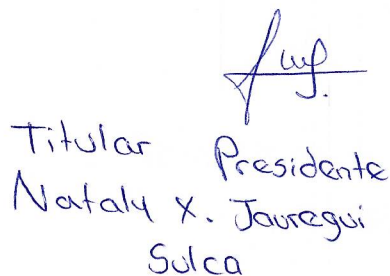 Titular Presidente
Nataly X. Jauregui
Sulca